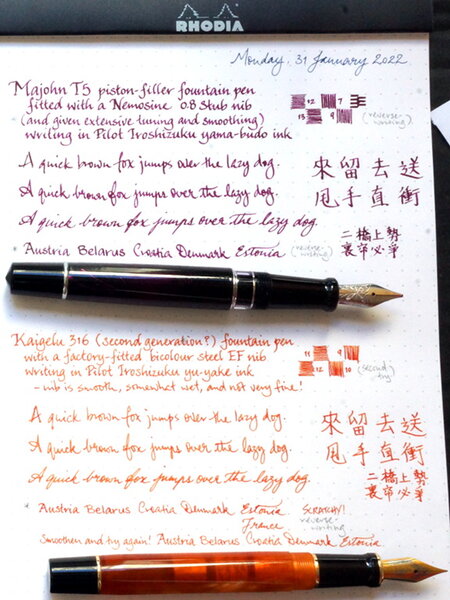 RHODIA
Monday, 31 January 2022
Majohn T5 piston-filler fountain pen
fitted with a Nemosine 0.8 Stub nib
(and given extensive tuning and smoothing)
writing in Pilot Iroshizuku yama-budo ink
12 7
13 9
(reverse-writing)
A quick brown fox jumps over the lazy dog.
A quick brown fox jumps over the lazy dog.
A quick brown fox jumps over the lazy dog.
來留去送
甩手直衝
* Austria Belarus Croatia Denmark Estonia (reverse-writing)
二橋上勢
裏帘必爭
Kaigelu 316 (second generation?) fountain pen
with a factory-fitted bicolour steel EF nib
writing in Pilot Iroshizuku yu-yake ink
- nib is smooth, somewhat wet, and not very fine!
11 9
12 10
(second-try)
A quick brown fox jumps over the lazy dog.
A quick brown fox jumps over the lazy dog.
A quick brown fox jumps over the lazy dog.
來留去送
甩手直衝
二橋上勢
裏帘必爭
* Austria Belarus Croatia Denmark Estonia SCRATCHY!
France reverse-writing
Smoothen and try again! Austria Belarus Croatia Denmark Estonia